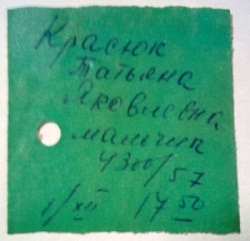 Красюк
Татьяна
Яковлевна
мальчик
4300/57
1/XII 17 50